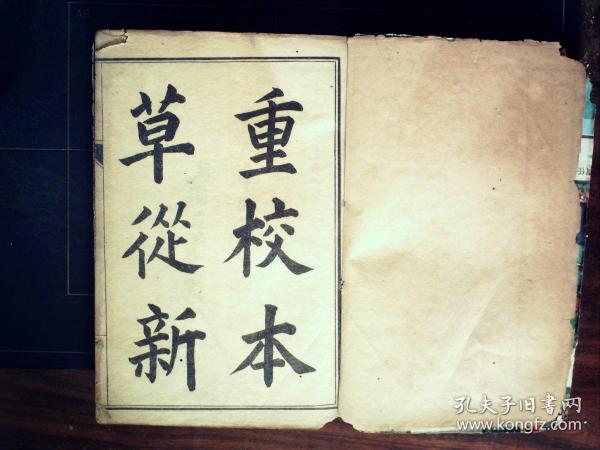 重校本
草從新
孔夫子旧書网
www.kongfz.com